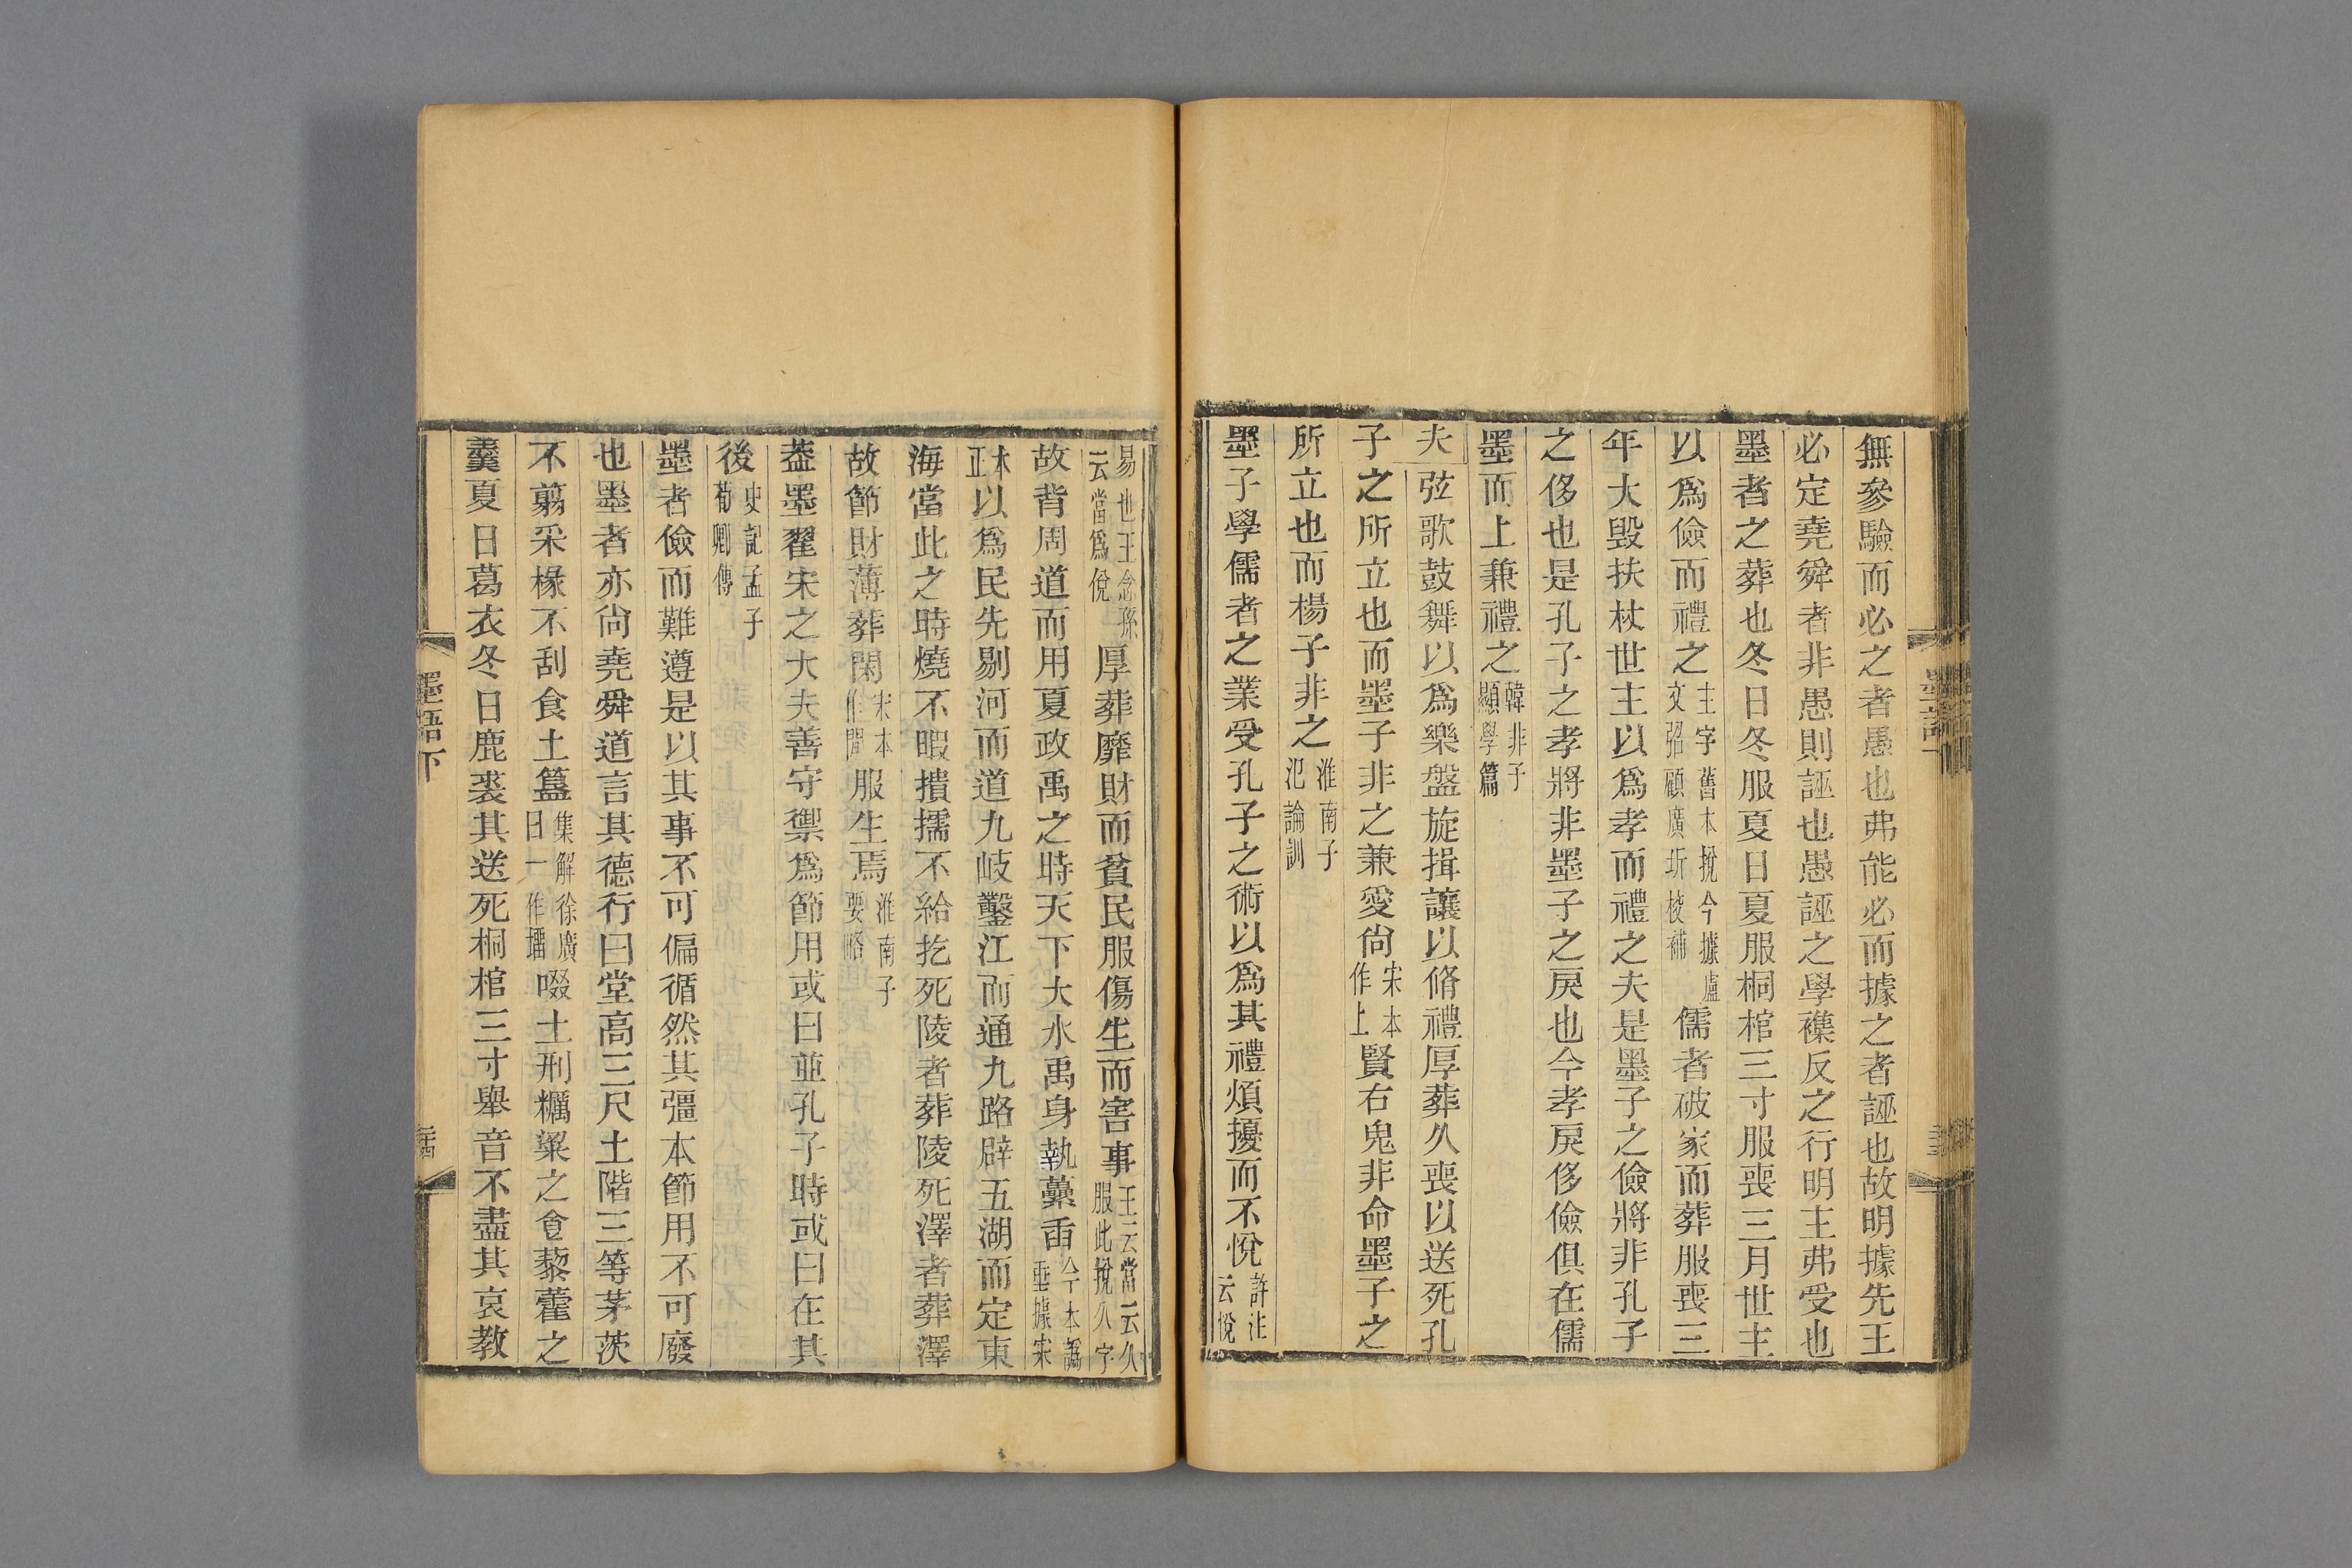 無參驗而必之者愚也弗能必而據之者誣也故明據先王
必定堯舜者非愚則誣也愚誣之學襍反之行明主弗受也
墨者之葬也冬日冬服夏日夏服桐棺三寸服喪三月世主
以爲儉而禮之主字舊本挩今據盧文弨顧廣圻校補儒者破家而葬服喪三
年大毀扶杖世主以爲孝而禮之夫是墨子之儉將非孔子
之侈也是孔子之孝將非墨子之戾也今孝戾侈儉俱在儒
墨而上兼禮之韓非子顯學篇
夫弦歌鼓舞以爲樂盤旋揖讓以脩禮厚葬久喪以送死孔
子之所立也而墨子非之兼愛尙宋本作上賢右鬼非命墨子之
所立也而楊子非之淮南子氾論訓
墨子學儒者之業受孔子之術以爲其禮煩擾而不悅許注云悅
易也王念孫云當爲侻厚葬靡財而貧民服傷生而害事王云當云久服此挩久字
故背周道而用夏政禹之時天下大水禹身執虆臿今本譌垂據宋
本正以爲民先剔河而道九岐鑿江而通九路辟五湖而定東
海當此之時燒不暇撌擩不給扢死陵者葬陵死澤者葬澤
故節財薄葬閑宋本作閒服生焉淮南子要略
葢墨翟宋之大夫善守禦爲節用或曰並孔子時或曰在其
後史記孟子荀卿傳
墨者儉而難遵是以其事不可偏循然其彊本節用不可廢
也墨者亦尙堯舜道言其德行曰堂高三尺土階三等茅茨
不翦采椽不刮食土簋集解徐廣曰一作塯啜土刑糲粱之食藜藿之
羹夏日葛衣冬日鹿裘其送死桐棺三寸舉音不盡其哀教
墨語下